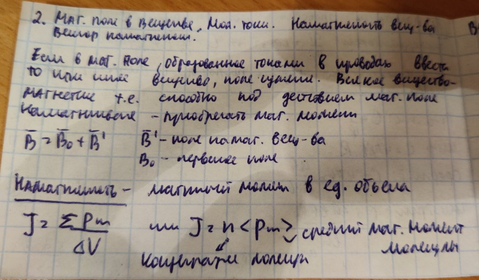 2. Маг. поле в веществе, Мол. токи. Намагненость вещ-ва
Вектор намагнечен.
Если в маг. поле, образованное токами в проводах ввести
то или иное вещество, поле изменит. Всякое вещество-
магнетик т.е. способно под действием маг. поле
намагничив - приобретать маг. момент
B̄ = B̄₀ + B̄' B̄' - поле намаг. вещ-ва
B₀ - первичное поле
Намагниченость - магнитный момент в ед. объема
J = Σ Pm / ΔV или J = n <Pm> средний маг. момент
молекулы
Концентрация молекул